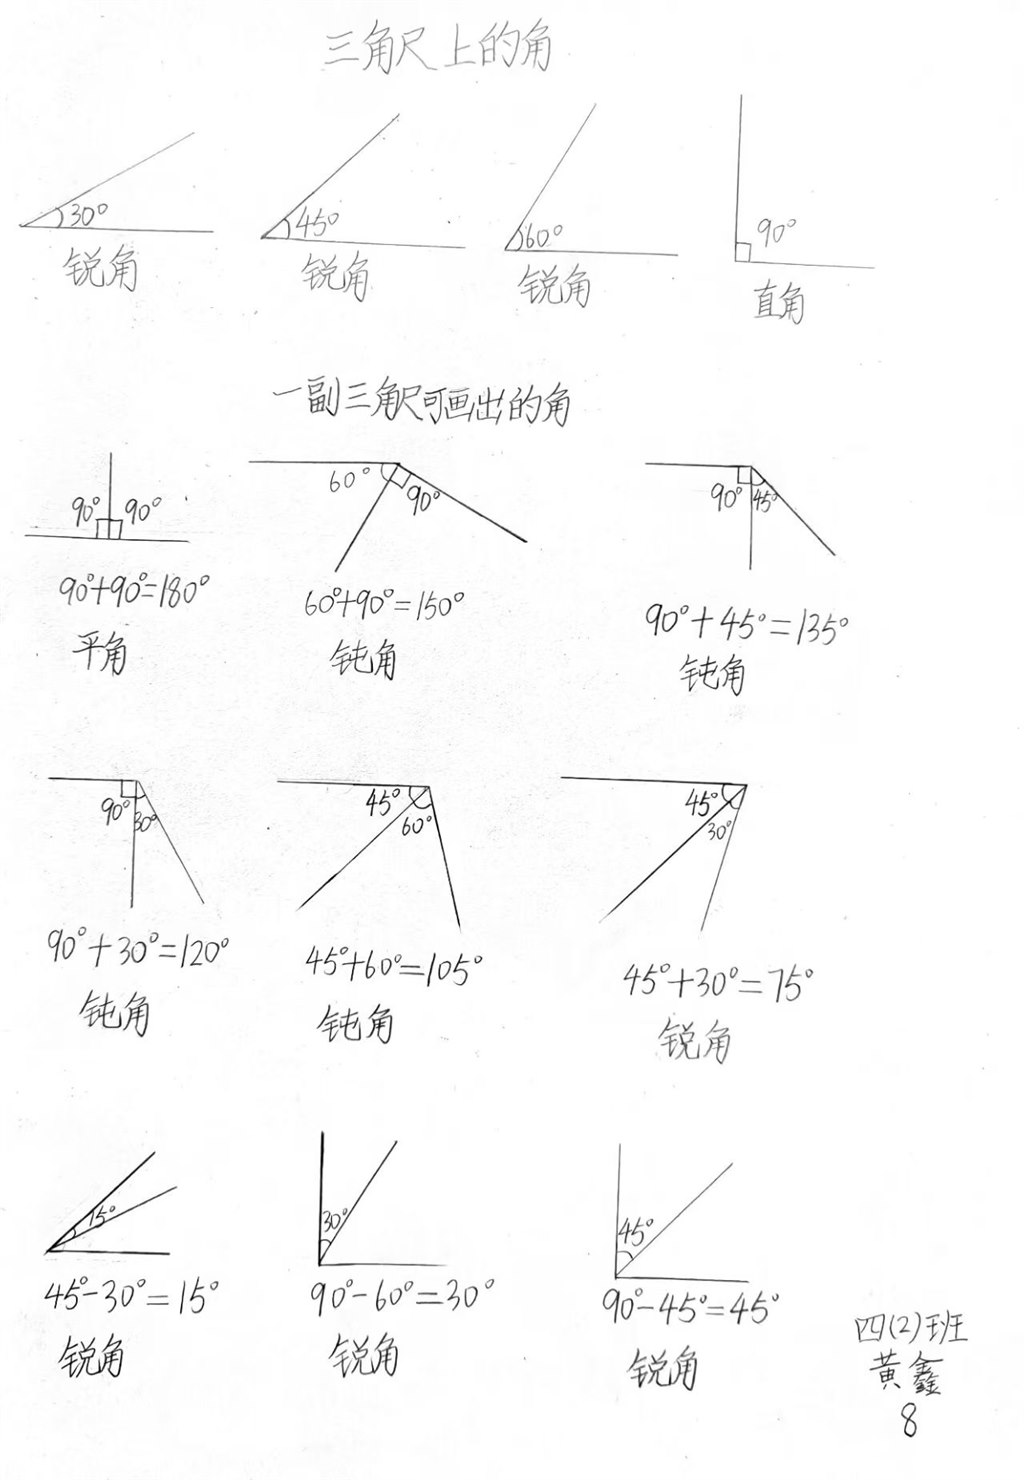 三角尺上的角
30° 45° 60° 90°
锐角 锐角 锐角 直角
一副三角尺可画出的角
90° 90° 60° 90° 90° 45°
90°+90°=180° 60°+90°=150° 90°+45°=135°
平角 钝角 钝角
90° 30° 45° 60° 45° 30°
90°+30°=120° 45°+60°=105° 45°+30°=75°
钝角 钝角 锐角
15° 30° 45°
45°-30°=15° 90°-60°=30° 90°-45°=45°
锐角 锐角 锐角
四(2)班
黄鑫
8